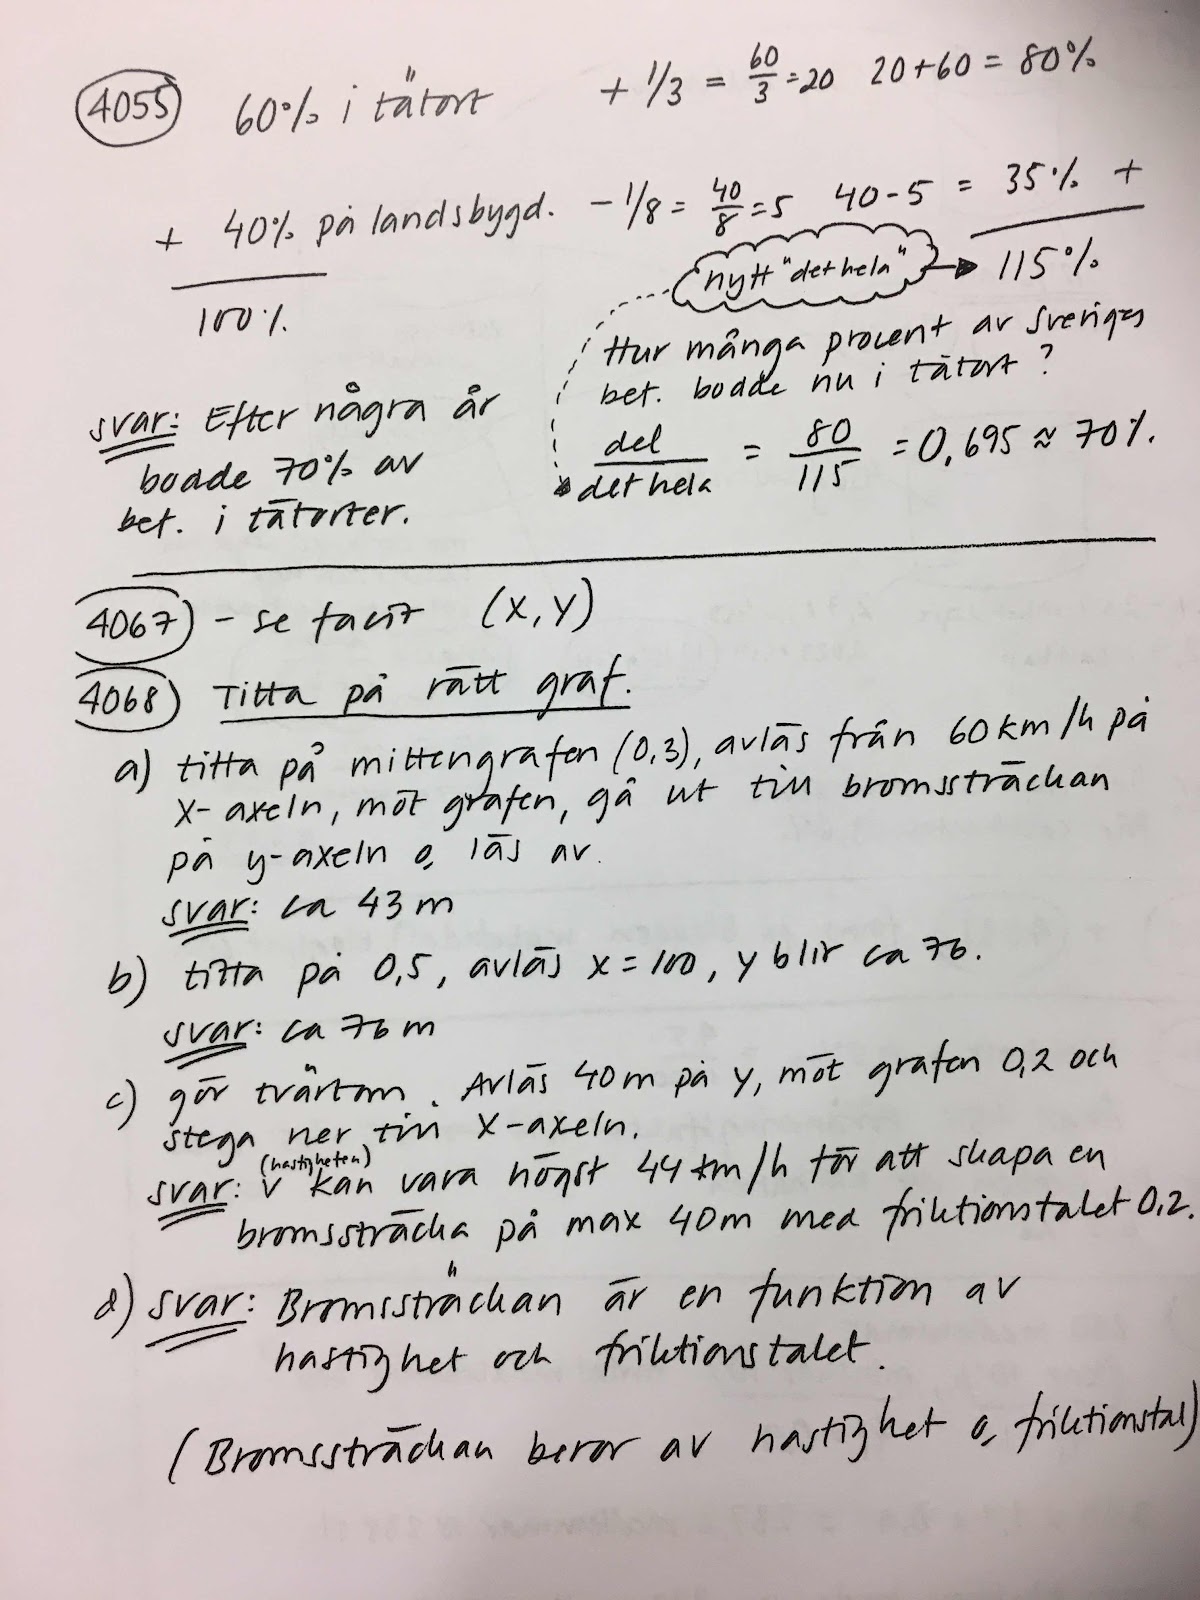 4055 60% i tätort + 1/3 = 60/3 = 20 20+60 = 80%
+ 40% på landsbygd. - 1/8 = 40/8 = 5 40-5 = 35% +
100%
nytt "det hela" → 115%
Hur många procent av Sveriges
bet. bodde nu i tätort?
del/det hela = 80/115 = 0,695 ≈ 70%.
svar: Efter några år
bodde 70% av
bet. i tätorter.
4067 - se facit (X,Y)
4068 Titta på rätt graf.
a) titta på mittengrafen (0,3), avläs från 60 km/h på
X-axeln, möt grafen, gå ut till bromssträckan
på y-axeln o, läs av.
svar: ca 43 m
b) titta på 0,5, avläs x = 100, y blir ca 76.
svar: ca 76 m
c) gör tvärtom. Avläs 40 m på y, möt grafen 0,2 och
stega ner till X-axeln.
(hastigheten)
svar: v kan vara högst 44 km/h för att skapa en
bromssträcka på max 40m med friktionstalet 0,2.
d) svar: Bromssträckan är en funktion av
hastighet och friktionstalet.
(Bromssträckan beror av hastighet o, friktionstal)